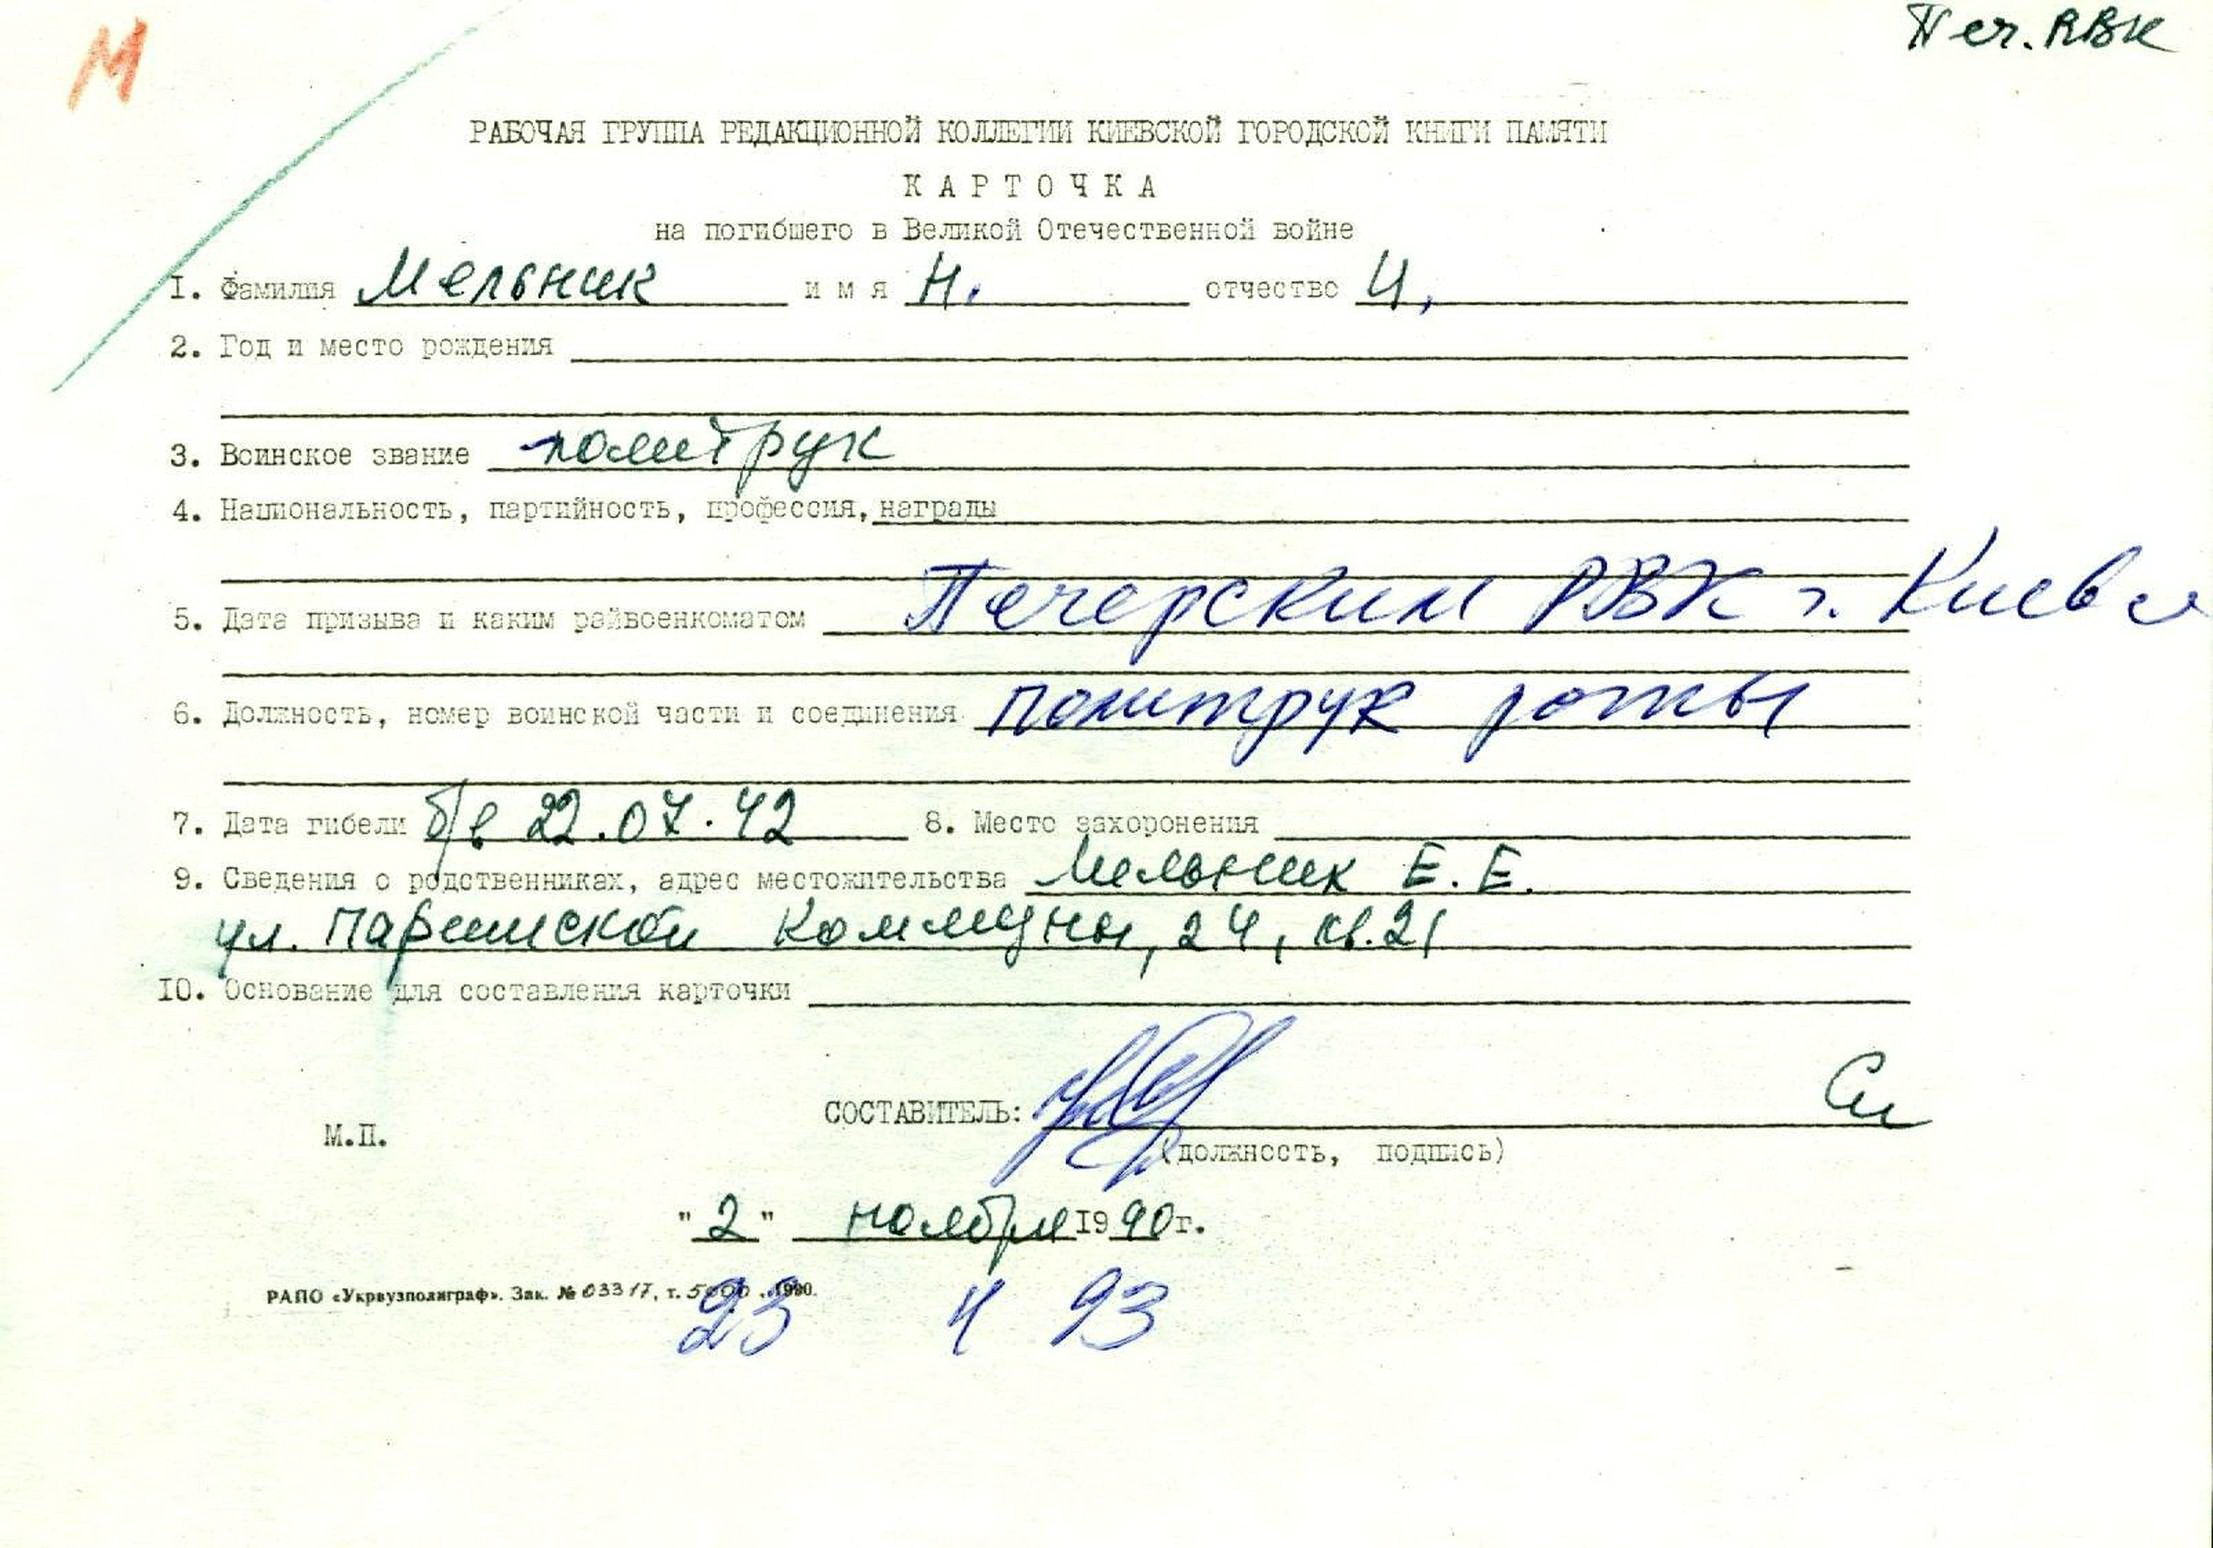 М
Печ. РВК
РАБОЧАЯ ГРУППА РЕДАКЦИОННОЙ КОЛЛЕГИИ КИЕВСКОЙ ГОРОДСКОЙ КНИГИ ПАМЯТИ
КАРТОЧКА
на погибшего в Великой Отечественной войне
1. Фамилия Мельник имя Н. отчество И.
2. Год и место рождения
3. Воинское звание политрук
4. Национальность, партийность, профессия, награды
5. Дата призыва и каким райвоенкоматом Печерским РВК г. Киева
6. Должность, номер воинской части и соединения политрук роты
7. Дата гибели б/в 22.07.42 8. Место захоронения
9. Сведения о родственниках, адрес местожительства Мельник Е. Е.
ул. Парижской Коммуны, 24, кв. 21
10. Основание для составления карточки
СОСТАВИТЕЛЬ:
М.П.
(должность, подпись)
"2" ноября 1990г.
РАПО «Укрвузполиграф». Зак. № 03317, т. 5000. 1990.
23 4 93